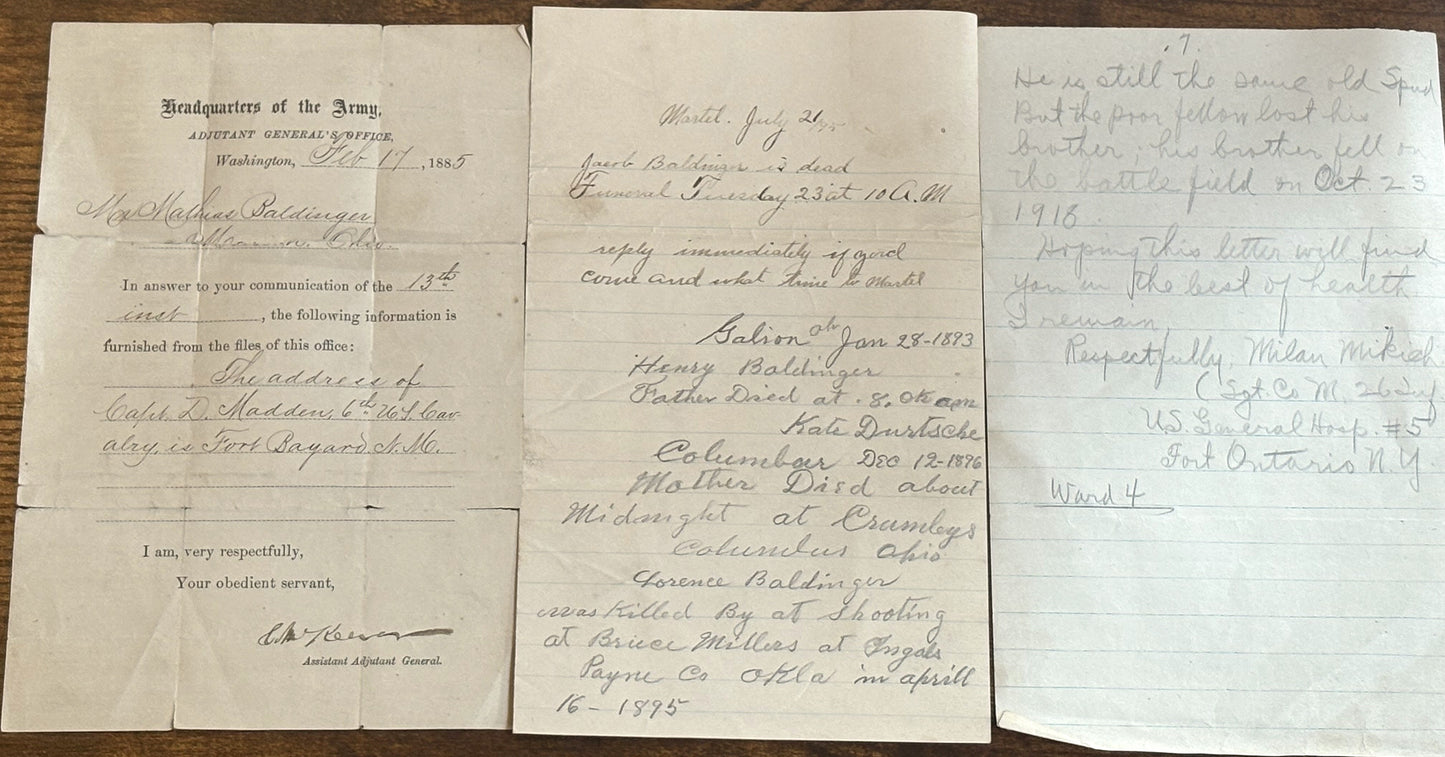 Headquarters of the Army,
ADJUTANT GENERAL'S OFFICE,
Washington, Feb 17, 1885
Mr Mathias Baldinger
Marion, Ohio.
In answer to your communication of the 13th
inst, the following information is
furnished from the files of this office:
The address of
Capt. D. Madden, 6th U S Cav-
alry, is Fort Bayard N. M.
I am, very respectfully,
Your obedient servant,
C McKeever
Assistant Adjutant General.
Martel. July 21/95
Jacob Baldinger is dead
Funeral Tuesday 23 at 10 A.M
reply immediately if you'd
come and what time to Martel
Galion Oh Jan 28-1893
Henry Baldinger
Father Died at 8, Ok am
Kate Durtsche
Columbus DEC 12-1896
Mother Died about
Midnight at Crumleys
Columbus Ohio
Lorence Baldinger
was Killed By at shooting
at Bruce Millers at Ingals
Payne Co Okla in aprill
16 - 1895
7.
He is still the same old Spud
But the poor fellow lost his
brother. his brother fell on
the battle field on Oct 23
1918.
Hoping this letter will find
you in the best of health
I remain,
Respectfully, Milan Mikich
(Sgt. Co M. 26 Inf
US. General Hosp. #5
Fort Ontario N.Y.
Ward 4